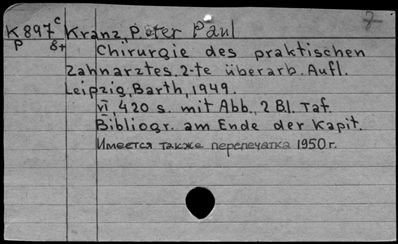 K 897 c Kranz, Peter Paul
P 8+ Chirurgie des praktischen
Zahnarztes. 2-te überarb. Aufl.
Leipzig, Barth, 1949.
VI, 420 s. mit Abb., 2 Bl. Taf.
Bibliogr. am Ende der Kapit.
Имеется также перепечатка 1950 г.